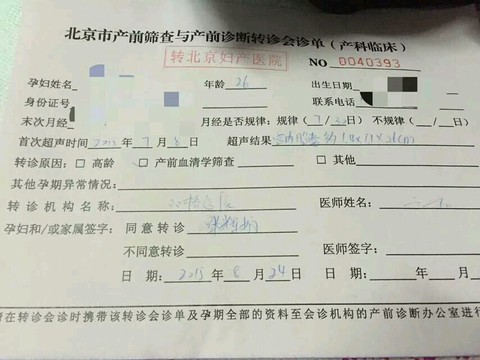 北京市产前筛查与产前诊断转诊会诊单（产科临床）
转北京妇产医院 NO 0040393
孕妇姓名 年龄 26 出生日期
身份证号 联系电话
末次月经 月经是否规律：规律（7/32）日 不规律（ / ）日
首次超声时间 2015年7月8日 超声结果
转诊原因：□ 高龄 □ 产前血清学筛查 □ 其他
其他孕期异常情况：
转诊机构名称： 医师姓名：
孕妇和/或家属签字：同意转诊
不同意转诊 医师签字：
日 期：2015年8月24日 日 期： 年 月
在转诊会诊时携带该转诊会诊单及孕期全部的资料至会诊机构的产前诊断办公室进行